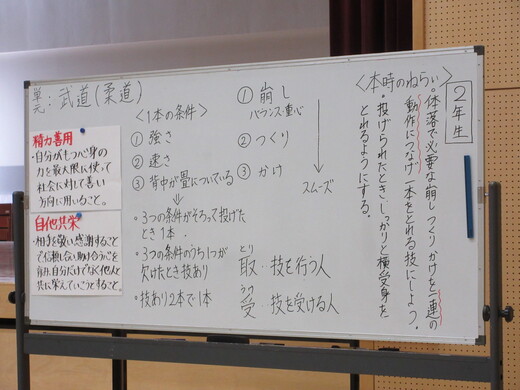 単元:武道(柔道)
精力善用
・自分がもつ心身の
力を最大限に使って
社会に対して善い
方向に用いること。
自他共栄
・相手を敬い感謝すること
で信頼し合い助け合う心を
育み自分だけでなく他人と
共に栄えていこうとすること
<1本の条件>
① 強さ
② 速さ
③ 背中が畳についている
・3つの条件がそろって投げた
とき1本.
・3つの条件のうち1つが
欠けたとき技あり
・技あり2本で1本
① 崩し
バランス・重心
② つくり
③ かけ
スムーズ
とり
取・・技を行う人
うけ
受・・技を受ける人
2年生
<本時のねらい>
・体落で必要な崩しつくりかけを一連の
動作につなげ一本をとれる技にしよう.
・投げられたとき、しっかりと横受身を
とれるようにする.